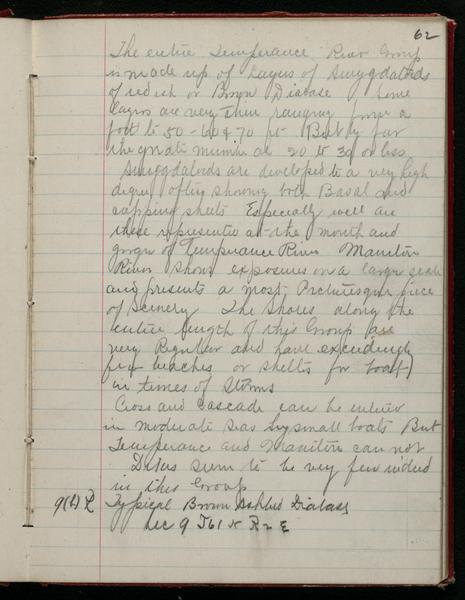 62
The entire Temperance River Group
is made up of Layers of Amygdaloids
of redish or Brown Diabase some
layers are very thin ranging from a
foot to 50-60 & 70 ft But by far
the greate number are 20 to 30 or less
Amygdaloids are developed to a very high
degree often showing both Basal and
capping sheets Especially well are
these represented at the mouth and
gorge of Temperance River Manitou
River shows exposures on a larger scale
and presents a most Picturesque piece
of Scenery The Shores along the
entire length of this Group are
very Regular and have exceedingly
few beaches or shelts for boats
in times of Storms
Cross and Cascade can be entered
in moderate seas by small boats But
Temperance and Manitou can not
Dikes seem to be very few indeed
in this Group
Typical Brown Diabase
Sec 9 T61 R2E